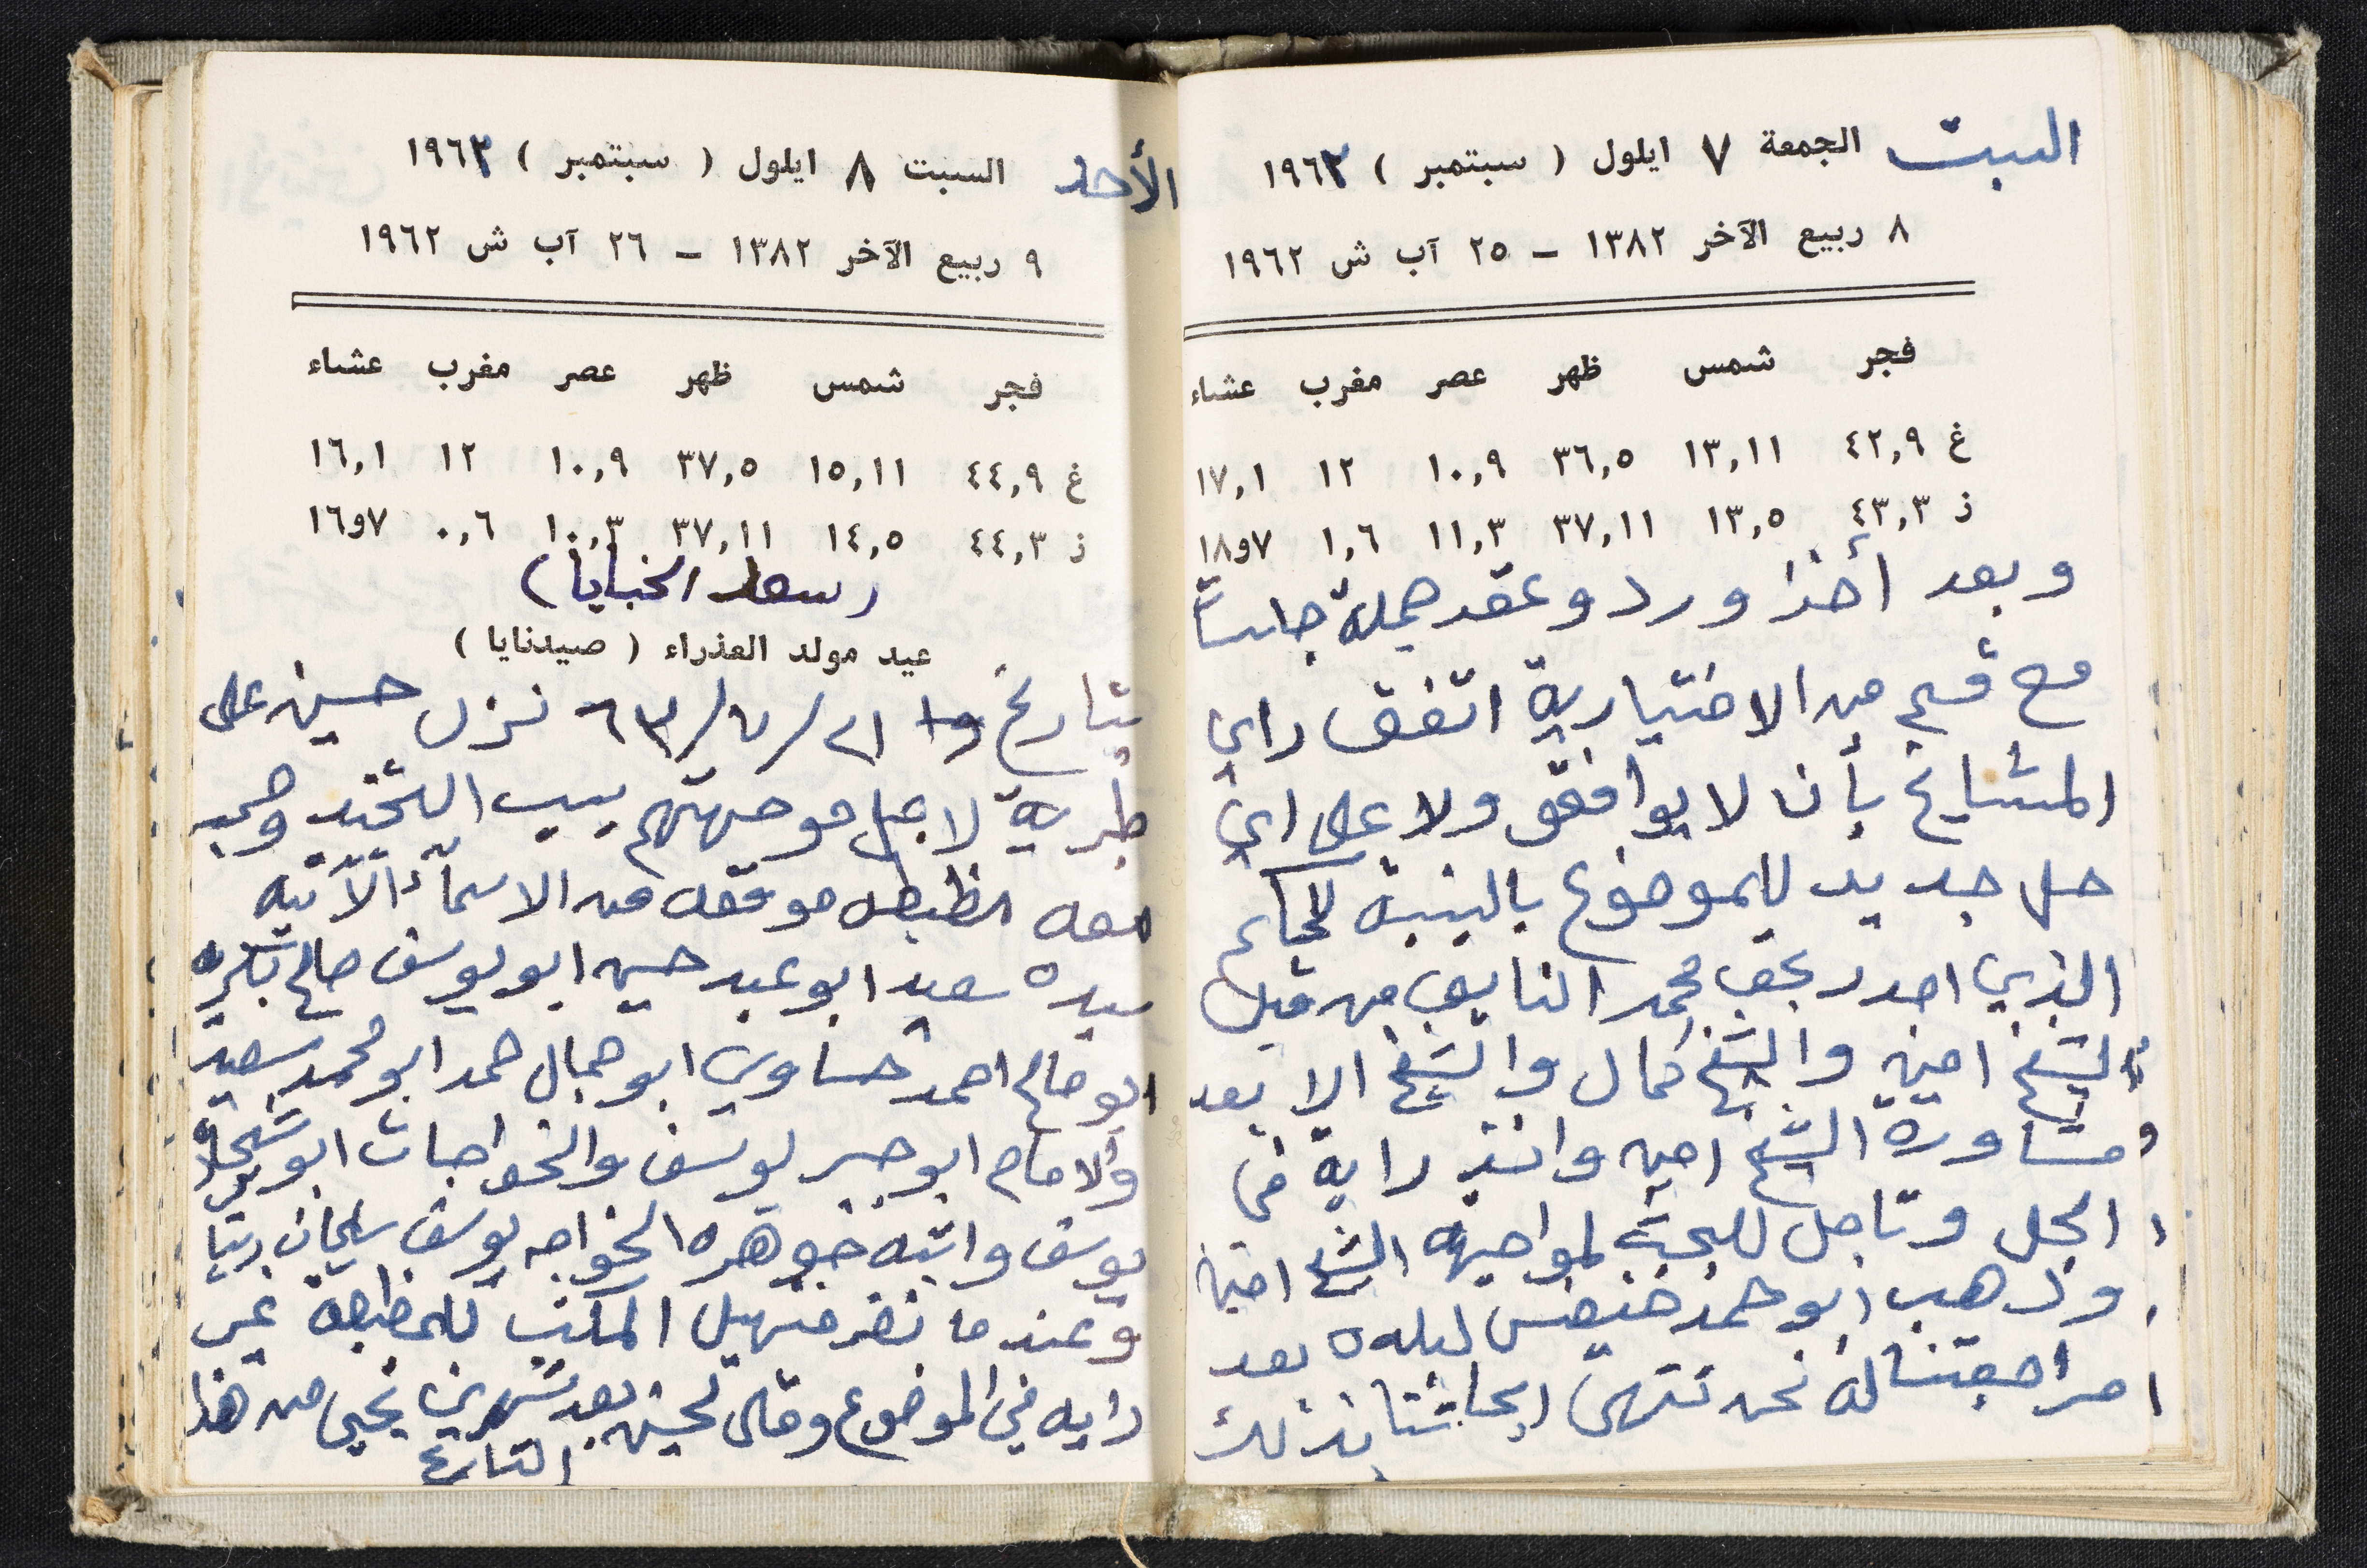 السبت الجمعة ٧ ايلول ( سبتمبر ) ١٩٦٣
٨ ربيع الآخر ١٣٨٢ – ٢٥ آب ش ١٩٦٢
فجر شمس ظهر عصر مغرب عشاء
غ ٤٢,٩ ١٣,١١ ٣٦,٥ ١٠,٩ ١٢ ١٧,١
ز ٤٣,٣ ١٣,٥ ٣٧,١١ ١١,٣ ١,٦ ٧و١٨
وبعد أخذ ورد وعقد جلسات
مع قسم من الاختيارية اتفق راي
المشايخ بأن لا يوافقو ولا على اي
حل جديد للموضوع بالنسبة للحكم
الذي اصدر بحق محمد النايف من قبل
الشيخ امين والشيخ كمال والشيخ الا بعد
مشاورة الشيخ امين واخذ رايه في
الحل وتاجل للجيه لمواجهة الشيخ امين
وذهب ابو حمد خنيفس لبلده بعد
مراجعتنا له نحن ننهي ابحاثنا بذلك
الأحد السبت ٨ ايلول ( سبتمبر ) ١٩٦٣
٩ ربيع الآخر ١٣٨٢ – ٢٦ آب ش ١٩٦٢
فجر شمس ظهر عصر مغرب عشاء
غ ٤٤,٩ ١٥,١١ ٣٧,٥ ١٠,٩ ١٢ ١٦,١
ز ٤٤,٣ ١٤,٥ ٣٧,١١ ١٠,٣ ٠,٦ ٧و١٦
(سعار الخبايا)
عيد مولد العذراء ( صيدنايا )
بتاريخ ٢١/٧/٦٣ نزل حسين على
طبرية لاجل مواجهتهم بسبب التجنيد وجب
معه مظبطه موقعه من الاسماء الآتيه
سيده سعيد ابو عبد حسين ابو يوسف صالح
ابو صالح احمد حساوي ابو جمال حمد ابو محمد سعيد
والامام ابو جبر يوسف والخواجات ابو
يوسف وابنه جوهره الخواجه يوسف سليمان
وعندما نضر المكتب للمظبطة غير
رايه في الموضوع وقال لحسين بعد شهرين يحيى من هذا
التاريخ